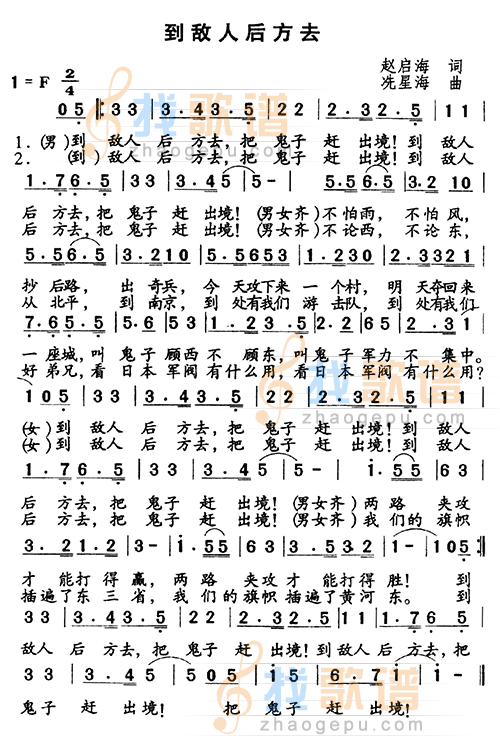 到敌人后方去
赵启海 词
1=F 2/4 冼星海 曲
05 ‖: 33 | 3.43.5 | 22 | 2.32.5 | 11 |
1.(男)到 敌人 后 方去,把 鬼子 赶 出境!到 敌人
2.(到)敌人 后 方去,把 鬼子 赶 出境!到 敌人
1.76.5 | 33 | 3.45 | 5- | 5.56.5 | 3.2 10 |
后 方去,把 鬼子 赶 出境!(男女齐)不怕雨, 不怕风,
后 方去,把 鬼子 赶 出境!(男女齐)不论西, 不论东,
5.56.5 | 3.210 | 5.5653 | 1.230 | 2.3321 |
抄 后路, 出 奇兵, 今 天攻下来 一个村, 明 天夺回来
从 北平, 到 南京, 到 处有我们 游 击队, 到 处有我们
7.65.5 | 5.653 | 1235.5 | 2.265 | 2.31 |
一座城,叫 鬼子 顾西不 顾东,叫鬼子 军力不 集中。
好弟兄,看 日本 军阀 有什么用?看日本 军阀 有什么用?
105 | 33 | 3.43.5 | 22 | 2.32.5 | 11 |
(女)到 敌人 后 方去,把 鬼子 赶 出境!到 敌人
(女)到 敌人 后 方去,把 鬼子 赶 出境!到 敌人
1.76.5 | 33 | 3.45 | 5- | 1.55 | 63 |
后 方去,把 鬼子 赶 出境!(男女齐)两路 夹攻
后 方去,把 鬼子 赶 出境!(男女齐)我们的 旗帜
3.21.2 | 3- | 1.55 | 63 | 3.532 | 1- | 105 :‖
才 能打得 赢, 两 路 夹攻 才 能打得 胜! 到
插遍了东 三 省, 我 们的 旗帜 插遍了黄河 东。 到
33 | 3.43.5 | 22 | 2.32.5 | 11 | 1.765 |
敌人 后 方去,把 鬼子 赶 出境!到 敌人 后 方去,把
33 | 3.45 | 505 | 15 | 6.71 | 1- ‖
鬼子 赶 出境! 把 鬼子 赶 出境!
找歌谱
zhaogepu.com
找歌谱
zhaogepu.com
找歌谱
zhaogepu.com